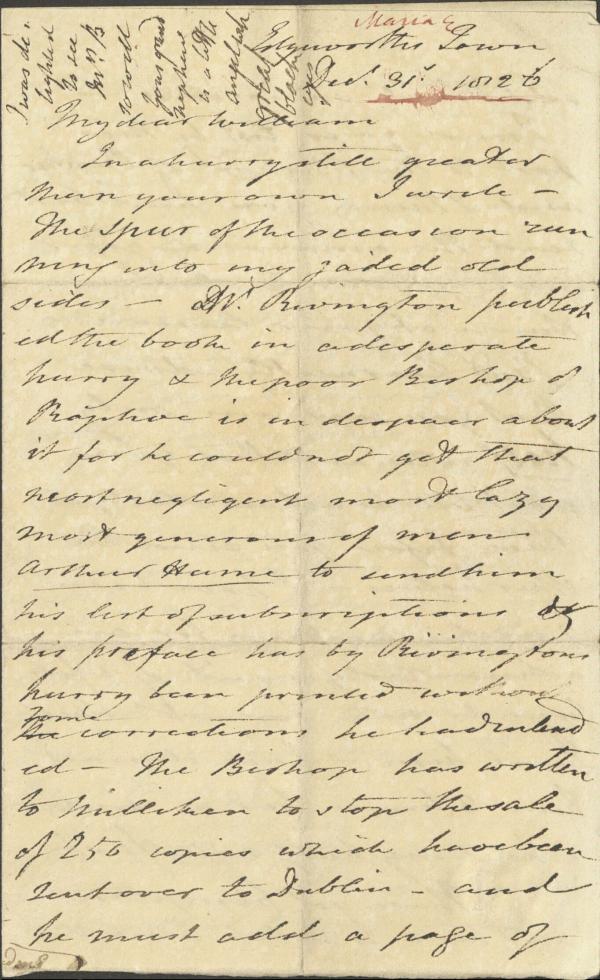 Maria E
Edgeworth's Town
Decr. 31st. 1826
My dear William
In a hurry still greater
than your own I write –
The spur of the occasion run
ning into my jaded old
sides – Mr. Rivington publish
ed the book in a desperate
hurry & the poor Bishop of
Raphoe is in despair about
it for he could not get that
most negligent most lazy
most generous of men
Arthur Hume to send him
his list of subscriptions &
his preface has by Rivingtons
hurry been printed without
some
the corrections he had intend
ed – The Bishop has written
to Milliken to stop the sale
of 250 copies which have been
sent over to Dublin – and
he must add a page of
I was de-
lighted
to see
Mr. & Mrs B
your grand
nephew
is a little
angelick
great
black
eyes